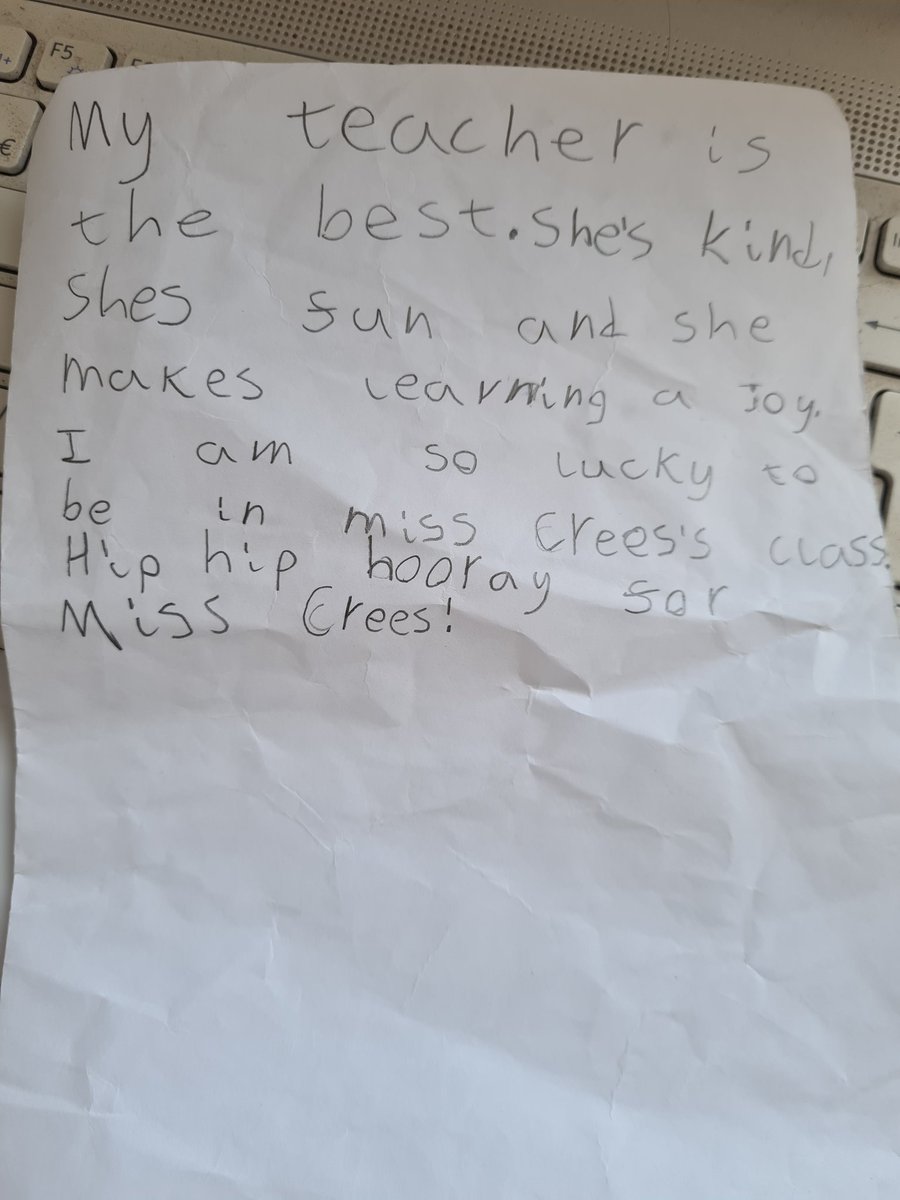 F5
€
My teacher is
the best. She's kind,
Shes fun and she
makes learning a Joy.
I am so lucky to
be in miss Crees's class.
Hip hip hooray for
Miss Crees!